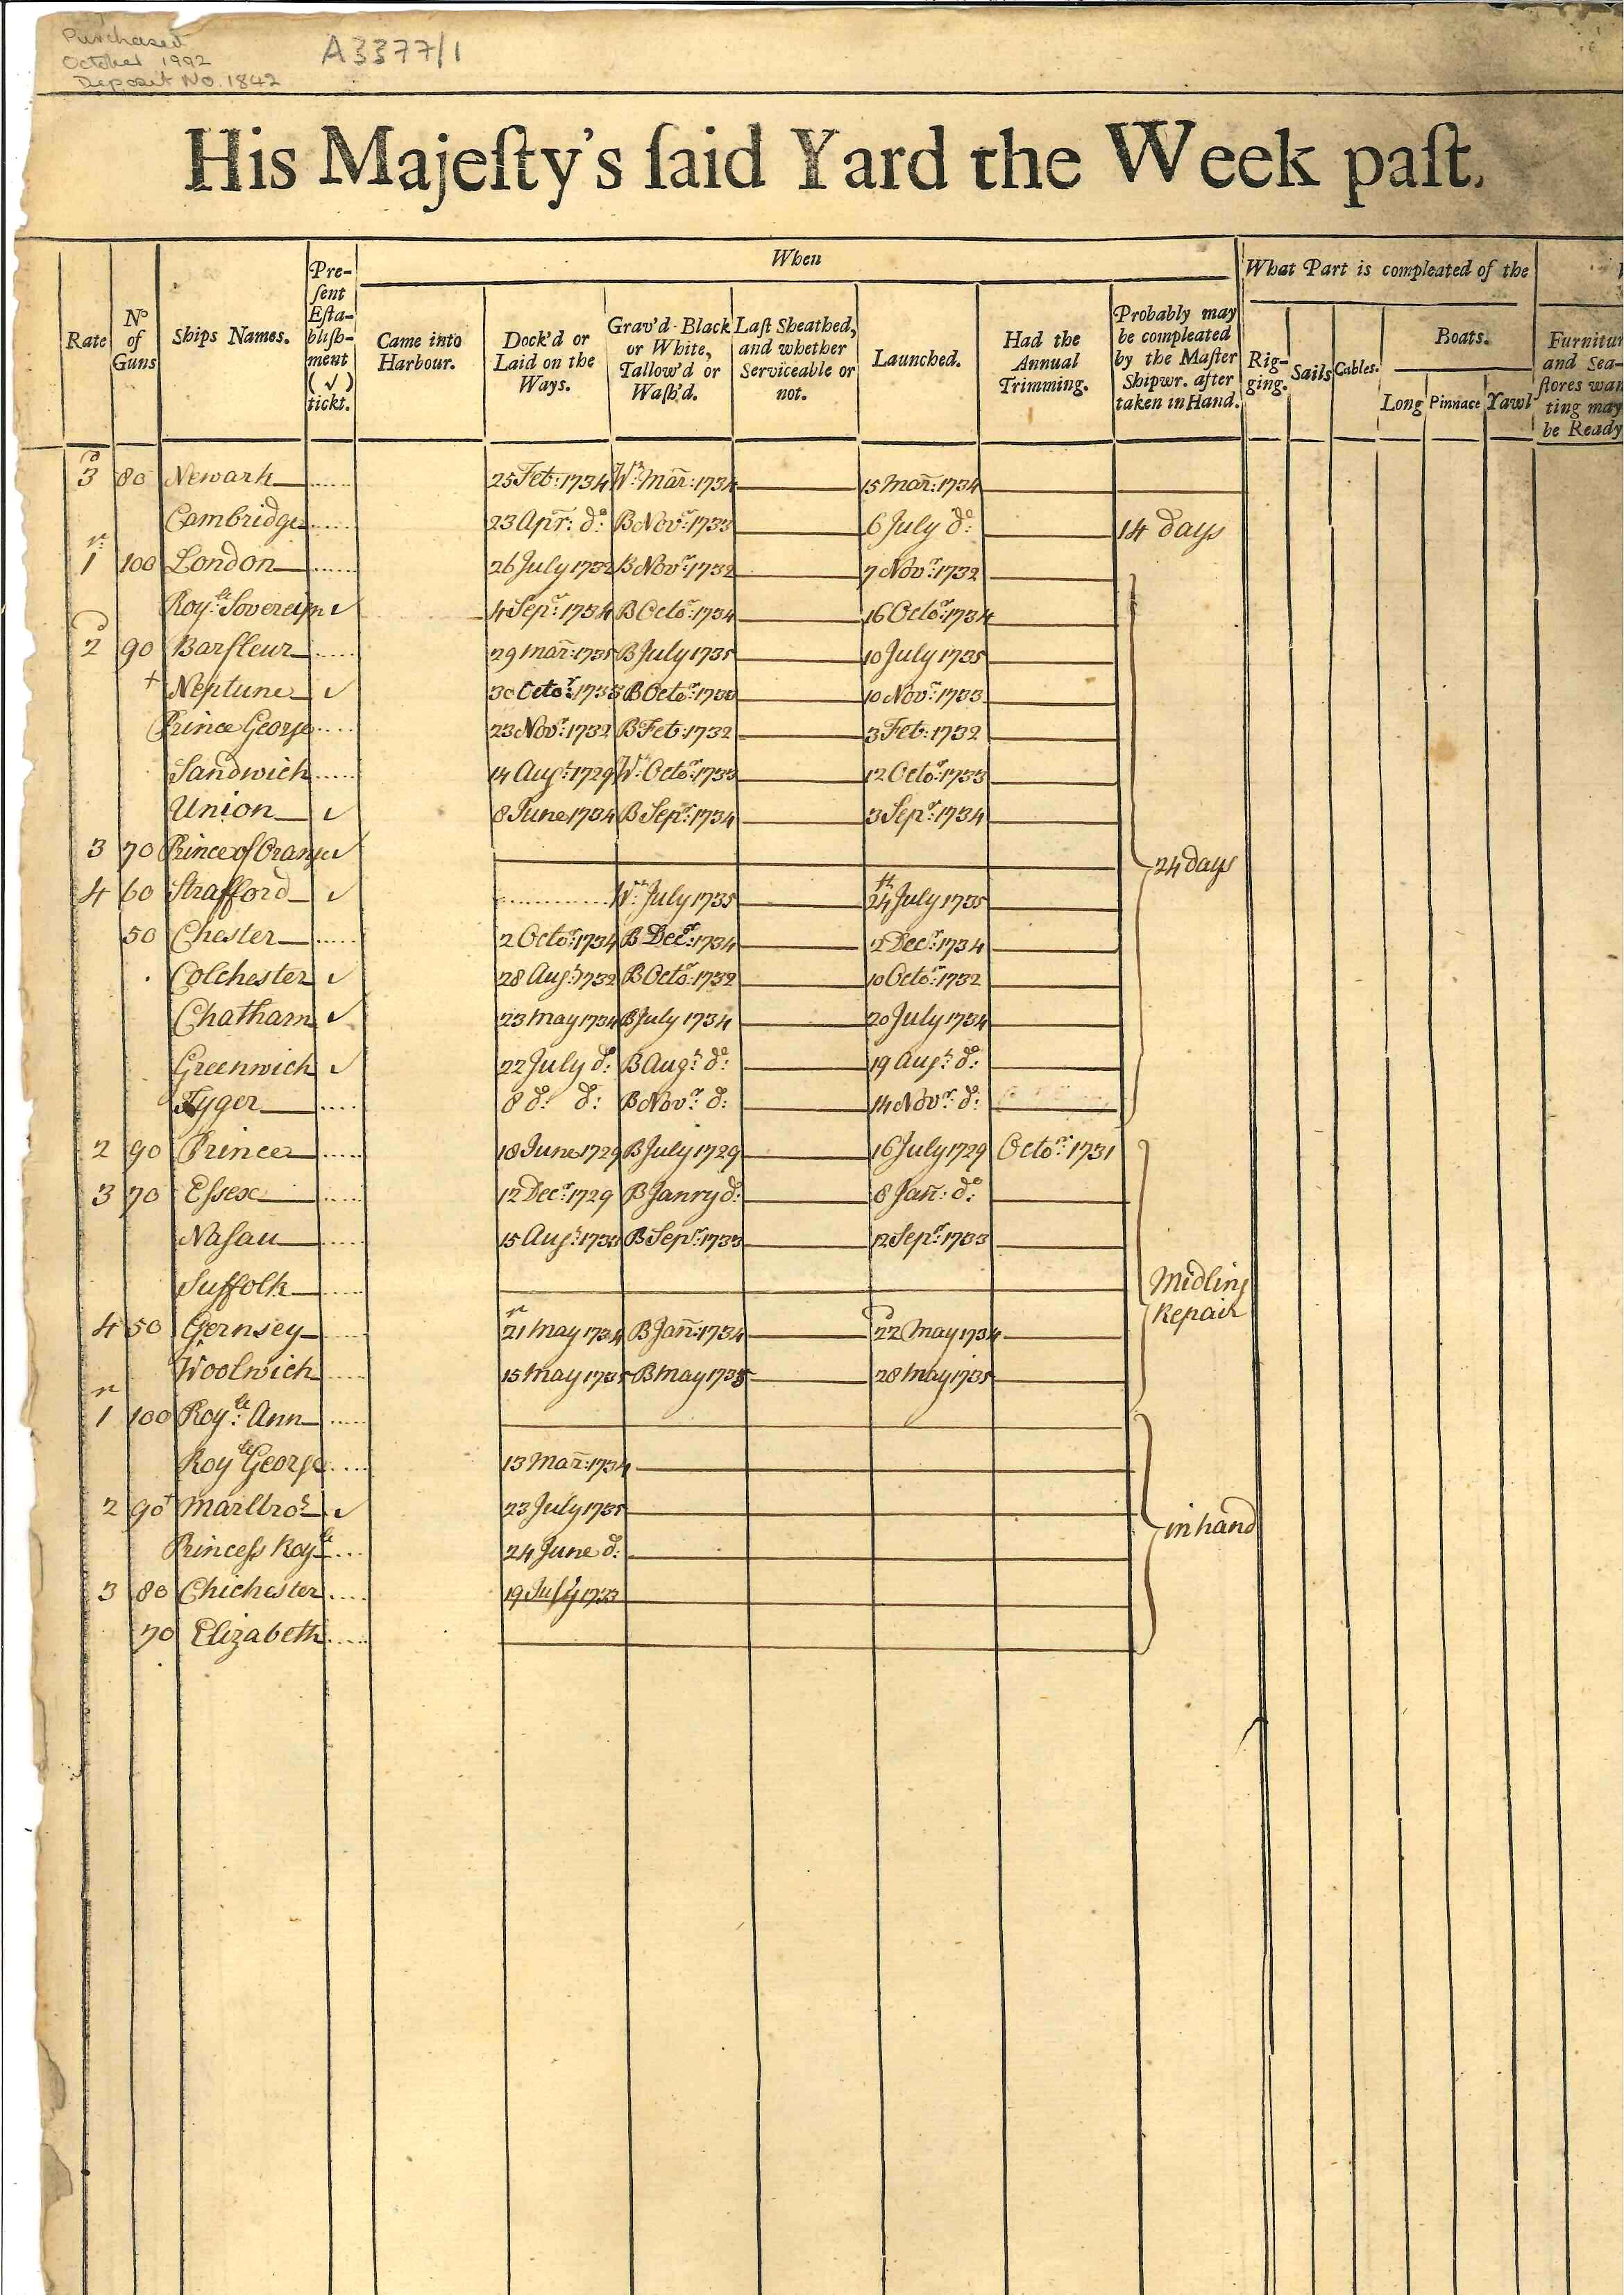 Purchased
October 1992
Deposit No. 1842
A3377/1
His Majeſty's ſaid Yard the Week paſt.
When
What Part is compleated of the
Rate
No of Guns
Ships Names.
Pre-ſent Eſta-bliſh-ment (√) tickt.
Came into Harbour.
Dock'd or Laid on the Ways.
Grav'd Black or White, Tallow'd or Waſh'd.
Laſt Sheathed, and whether Serviceable or not.
Launched.
Had the Annual Trimming.
Probably may be compleated by the Maſter Shipwr. after taken in Hand.
Rig-ging.
Sails
Cables.
Boats.
Long
Pinnace
Yawl
Furnitur
and Sea-
ſtores wan
ting may
be Ready
3d 80 Newark ...... 25 Feb: 1734 Wn: Mar: 1734 15 Mar: 1734
Cambridge ..... 23 Apr: do: B Novr: 1733 6 July do: 14 days
1r: 100 London ...... 26 July 1732 B Novr: 1732 7 Novr: 1732
Royll: Sovereign √ 4 Sepr: 1734 B Octor: 1734 16 Octor: 1734
2d 90 Barfleur ..... 29 Mar: 1735 B July 1735 10 July 1735
+ Neptune √ 30 Octor: 1733 B Octor: 1733 10 Novr: 1733
Prince George .... 23 Novr: 1732 B Feb: 1732 3 Feb: 1732
Sandwich ..... 14 Augt: 1729 Wn: Octor: 1733 12 Octor: 1733
Union √ 8 June 1734 B Sepr: 1734 3 Sepr: 1734
3 70 Prince of Orange √ 24 days
4 60 Strafford √ ............ Wn: July 1735 24th July 1735
50 Chester ..... 2 Octor: 1734 B Decr: 1734 2 Decr: 1734
Colchester √ 28 Augt: 1732 B Octor: 1732 10 Octor: 1732
Chatham √ 23 May 1734 B July 1734 20 July 1734
Greenwich √ 22 July do: B Augt: do: 19 Augt: do:
Tyger .... 8 do: do: B Novr: do: 14 Novr: do:
2 90 Prince ..... 18 June 1729 B July 1729 16 July 1729 Octor: 1731
3 70 Essex ..... 12 Decr: 1729 B Janry do: 8 Jan: do:
Nasau ..... 15 Augt: 1733 B Sepr: 1733 12 Sepr: 1733
Suffolk ..... Midling Repair
4 50 Gernsey ..... 21 May 1734 B Jan: 1734 22d May 1734
Woolwich .... 15 May 1735 B May 1735 28 May 1735
1r 100 Royll: Ann .....
Royll George .... 13 Mar: 1734
2 90 + Marlbro: √ 23 July 1735 in hand
Princess Royll ... 24 June do:
3 80 Chichester .... 19 July 1733
70 Elizabeth .....